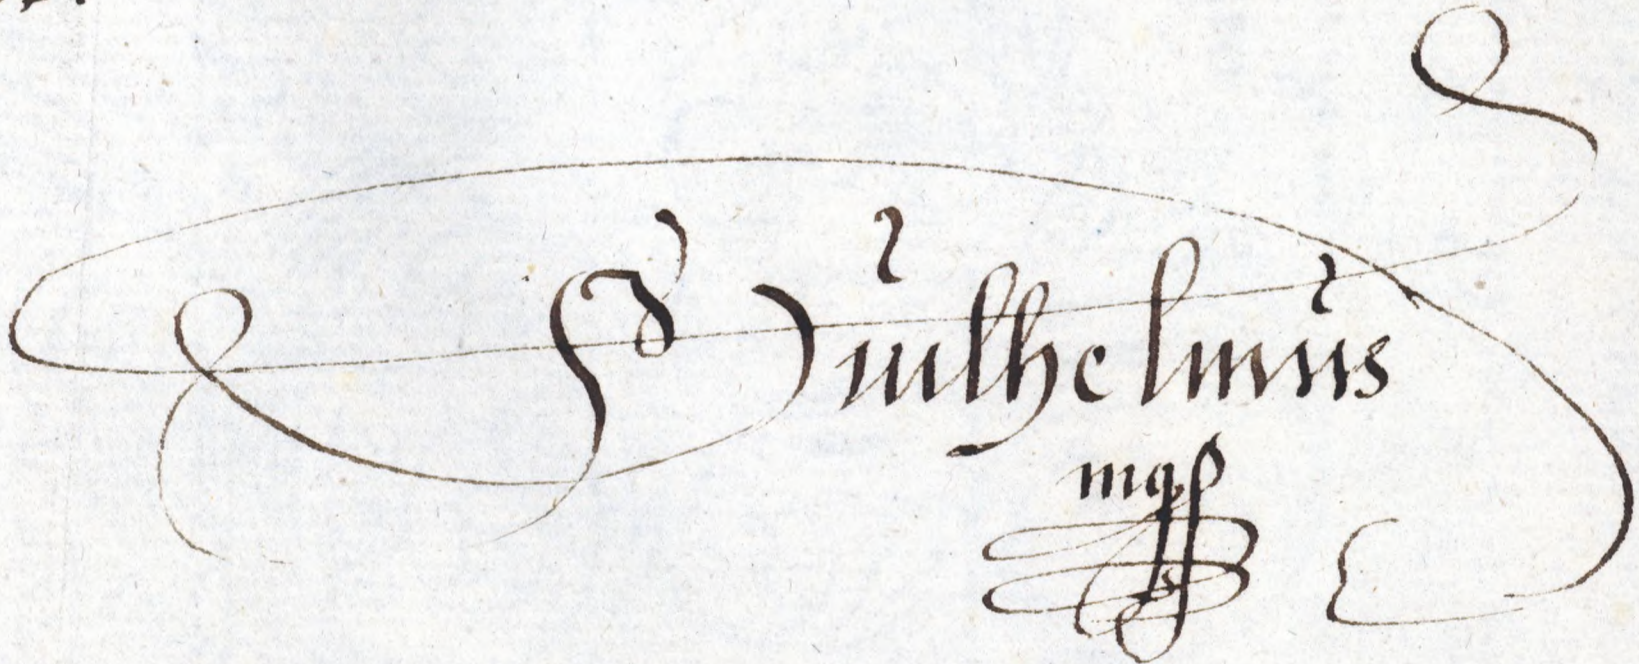 Guilhelmus
mpp